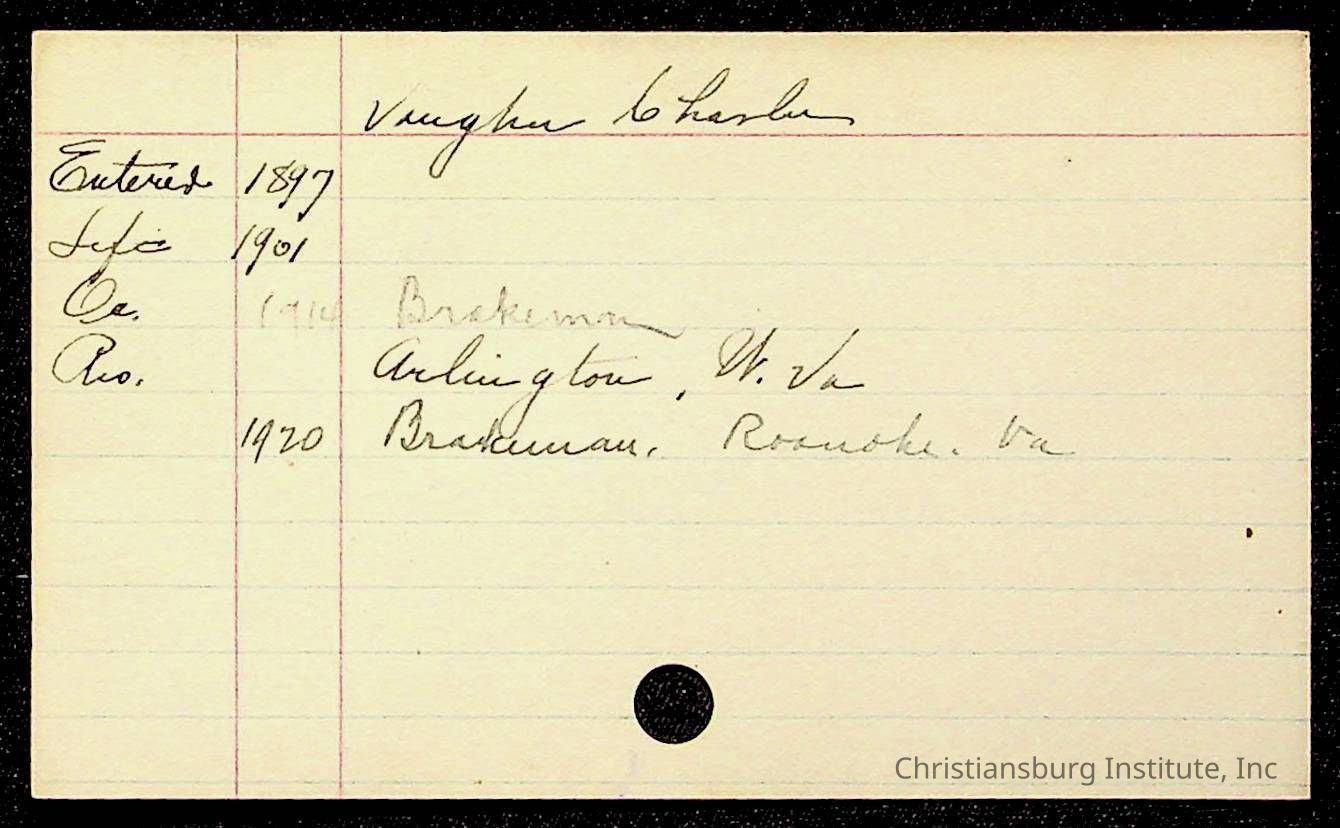 Vaughn Charles
Entered 1897
Left 1901
Oc. 1914 Brakeman
Res. Arlington, W. Va
1920 Brakeman. Roanoke. Va
Christiansburg Institute, Inc